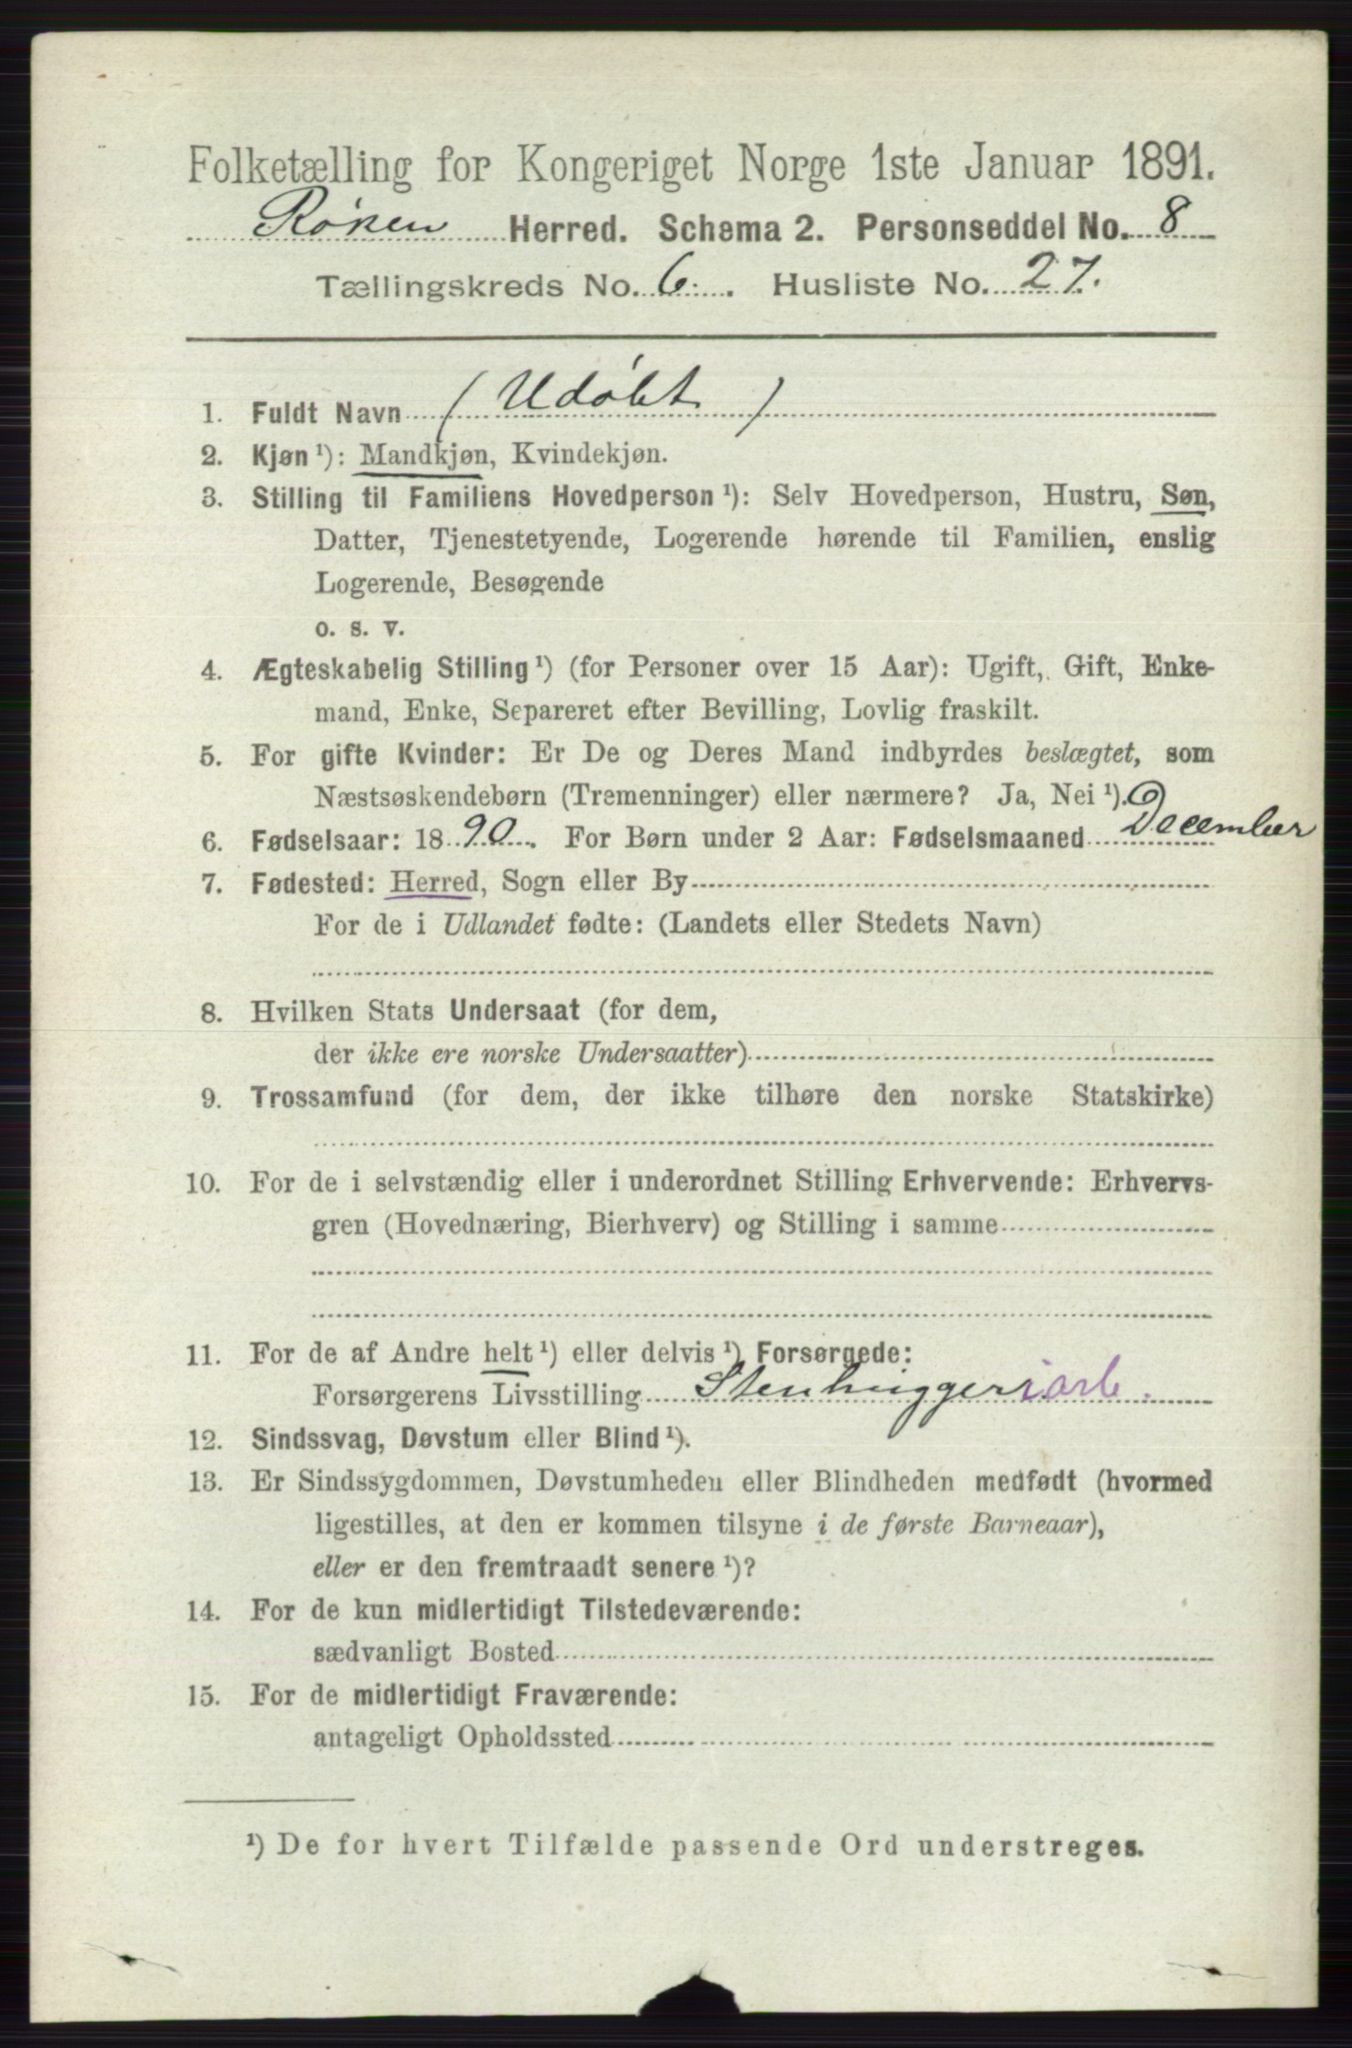 Folketælling for Kongeriget Norge 1ste Januar 1891.
Røken Herred. Schema 2. Personseddel No. 8
Tællingskreds No. 6. Husliste No. 27.
1. Fuldt Navn (Udøbt)
2. Kjøn ¹): Mandkjøn, Kvindekjøn.
3. Stilling til Familiens Hovedperson ¹): Selv Hovedperson, Hustru, Søn,
Datter, Tjenestetyende, Logerende hørende til Familien, enslig
Logerende, Besøgende
o. s. v.
4. Ægteskabelig Stilling ¹) (for Personer over 15 Aar): Ugift, Gift, Enke-
mand, Enke, Separeret efter Bevilling, Lovlig fraskilt.
5. For gifte Kvinder: Er De og Deres Mand indbyrdes beslægtet, som
Næstsøskendebørn (Tremenninger) eller nærmere? Ja, Nei ¹).
6. Fødselsaar: 1890. For Børn under 2 Aar: Fødselsmaaned December
7. Fødested: Herred, Sogn eller By
For de i Udlandet fødte: (Landets eller Stedets Navn)
8. Hvilken Stats Undersaat (for dem,
der ikke ere norske Undersaatter)
9. Trossamfund (for dem, der ikke tilhøre den norske Statskirke)
10. For de i selvstændig eller i underordnet Stilling Erhvervende: Erhvervs-
gren (Hovednæring, Bierhverv) og Stilling i samme
11. For de af Andre helt ¹) eller delvis ¹) Forsørgede:
Forsørgerens Livsstilling Stenhuggeriarb.
12. Sindssvag, Døvstum eller Blind ¹).
13. Er Sindssygdommen, Døvstumheden eller Blindheden medfødt (hvormed
ligestilles, at den er kommen tilsyne i de første Barneaar),
eller er den fremtraadt senere ¹)?
14. For de kun midlertidigt Tilstedeværende:
sædvanligt Bosted
15. For de midlertidigt Fraværende:
antageligt Opholdssted
¹) De for hvert Tilfælde passende Ord understreges.